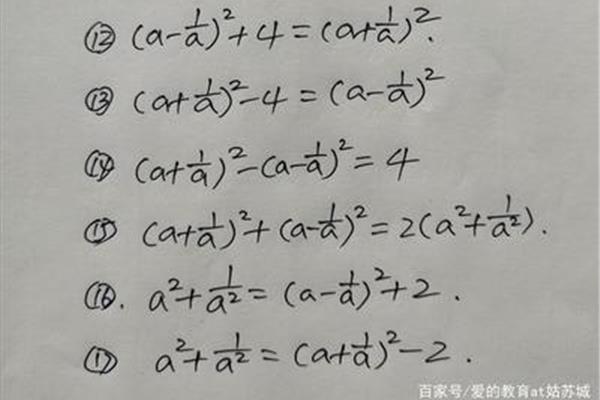 ⑫ (a-1/a)²+4=(a+1/a)².
⑬ (a+1/a)²-4=(a-1/a)²
⑭ (a+1/a)²-(a-1/a)²=4
⑮ (a+1/a)²+(a-1/a)²=2(a²+1/a²).
⑯. a²+1/a²=(a-1/a)²+2.
⑰ a²+1/a²=(a+1/a)²-2.
百家号/爱的教育at姑苏城